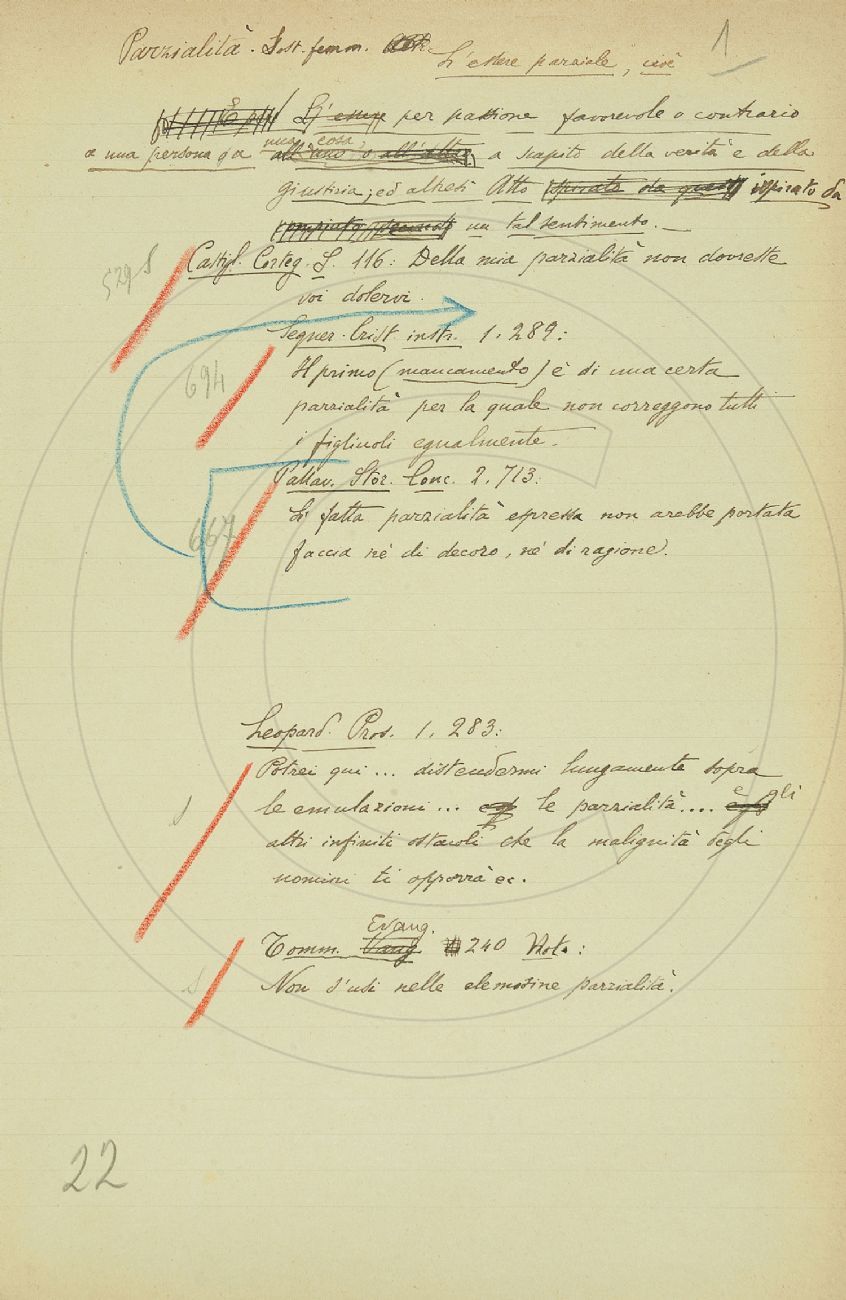 1
Parzialità. Sost. femm. L'essere parziale, cioè
L'essere per passione favorevole o contrario
a una persona o a una cosa, all'uno o all'altro, a scapito della verità e della
giustizia; ed altresì Atto ispirato da
un tal sentimento. —
529 S
Castigl. Corteg. S. 116: Della mia parzialità non dovreste
voi dolervi.
Segner. Crist. instr. 1. 289:
694
Il primo (mancamento) è di una certa
parzialità per la quale non correggono tutti
i figliuoli egualmente.
Pallav. Stor. Conc. 2. 713:
667
Sì fatta parzialità espressa non arebbe portata
faccia nè di decoro, nè di ragione.
Leopard. Pros. 1. 283:
Potrei qui ... distendermi lungamente sopra
le emulazioni ... le parzialità .... e gli
altri infiniti ostacoli che la malignità degli
uomini ti opporrà ec.
Tomm. Evang. 240 Nota:
Non s'usi nelle elemosine parzialità.
22